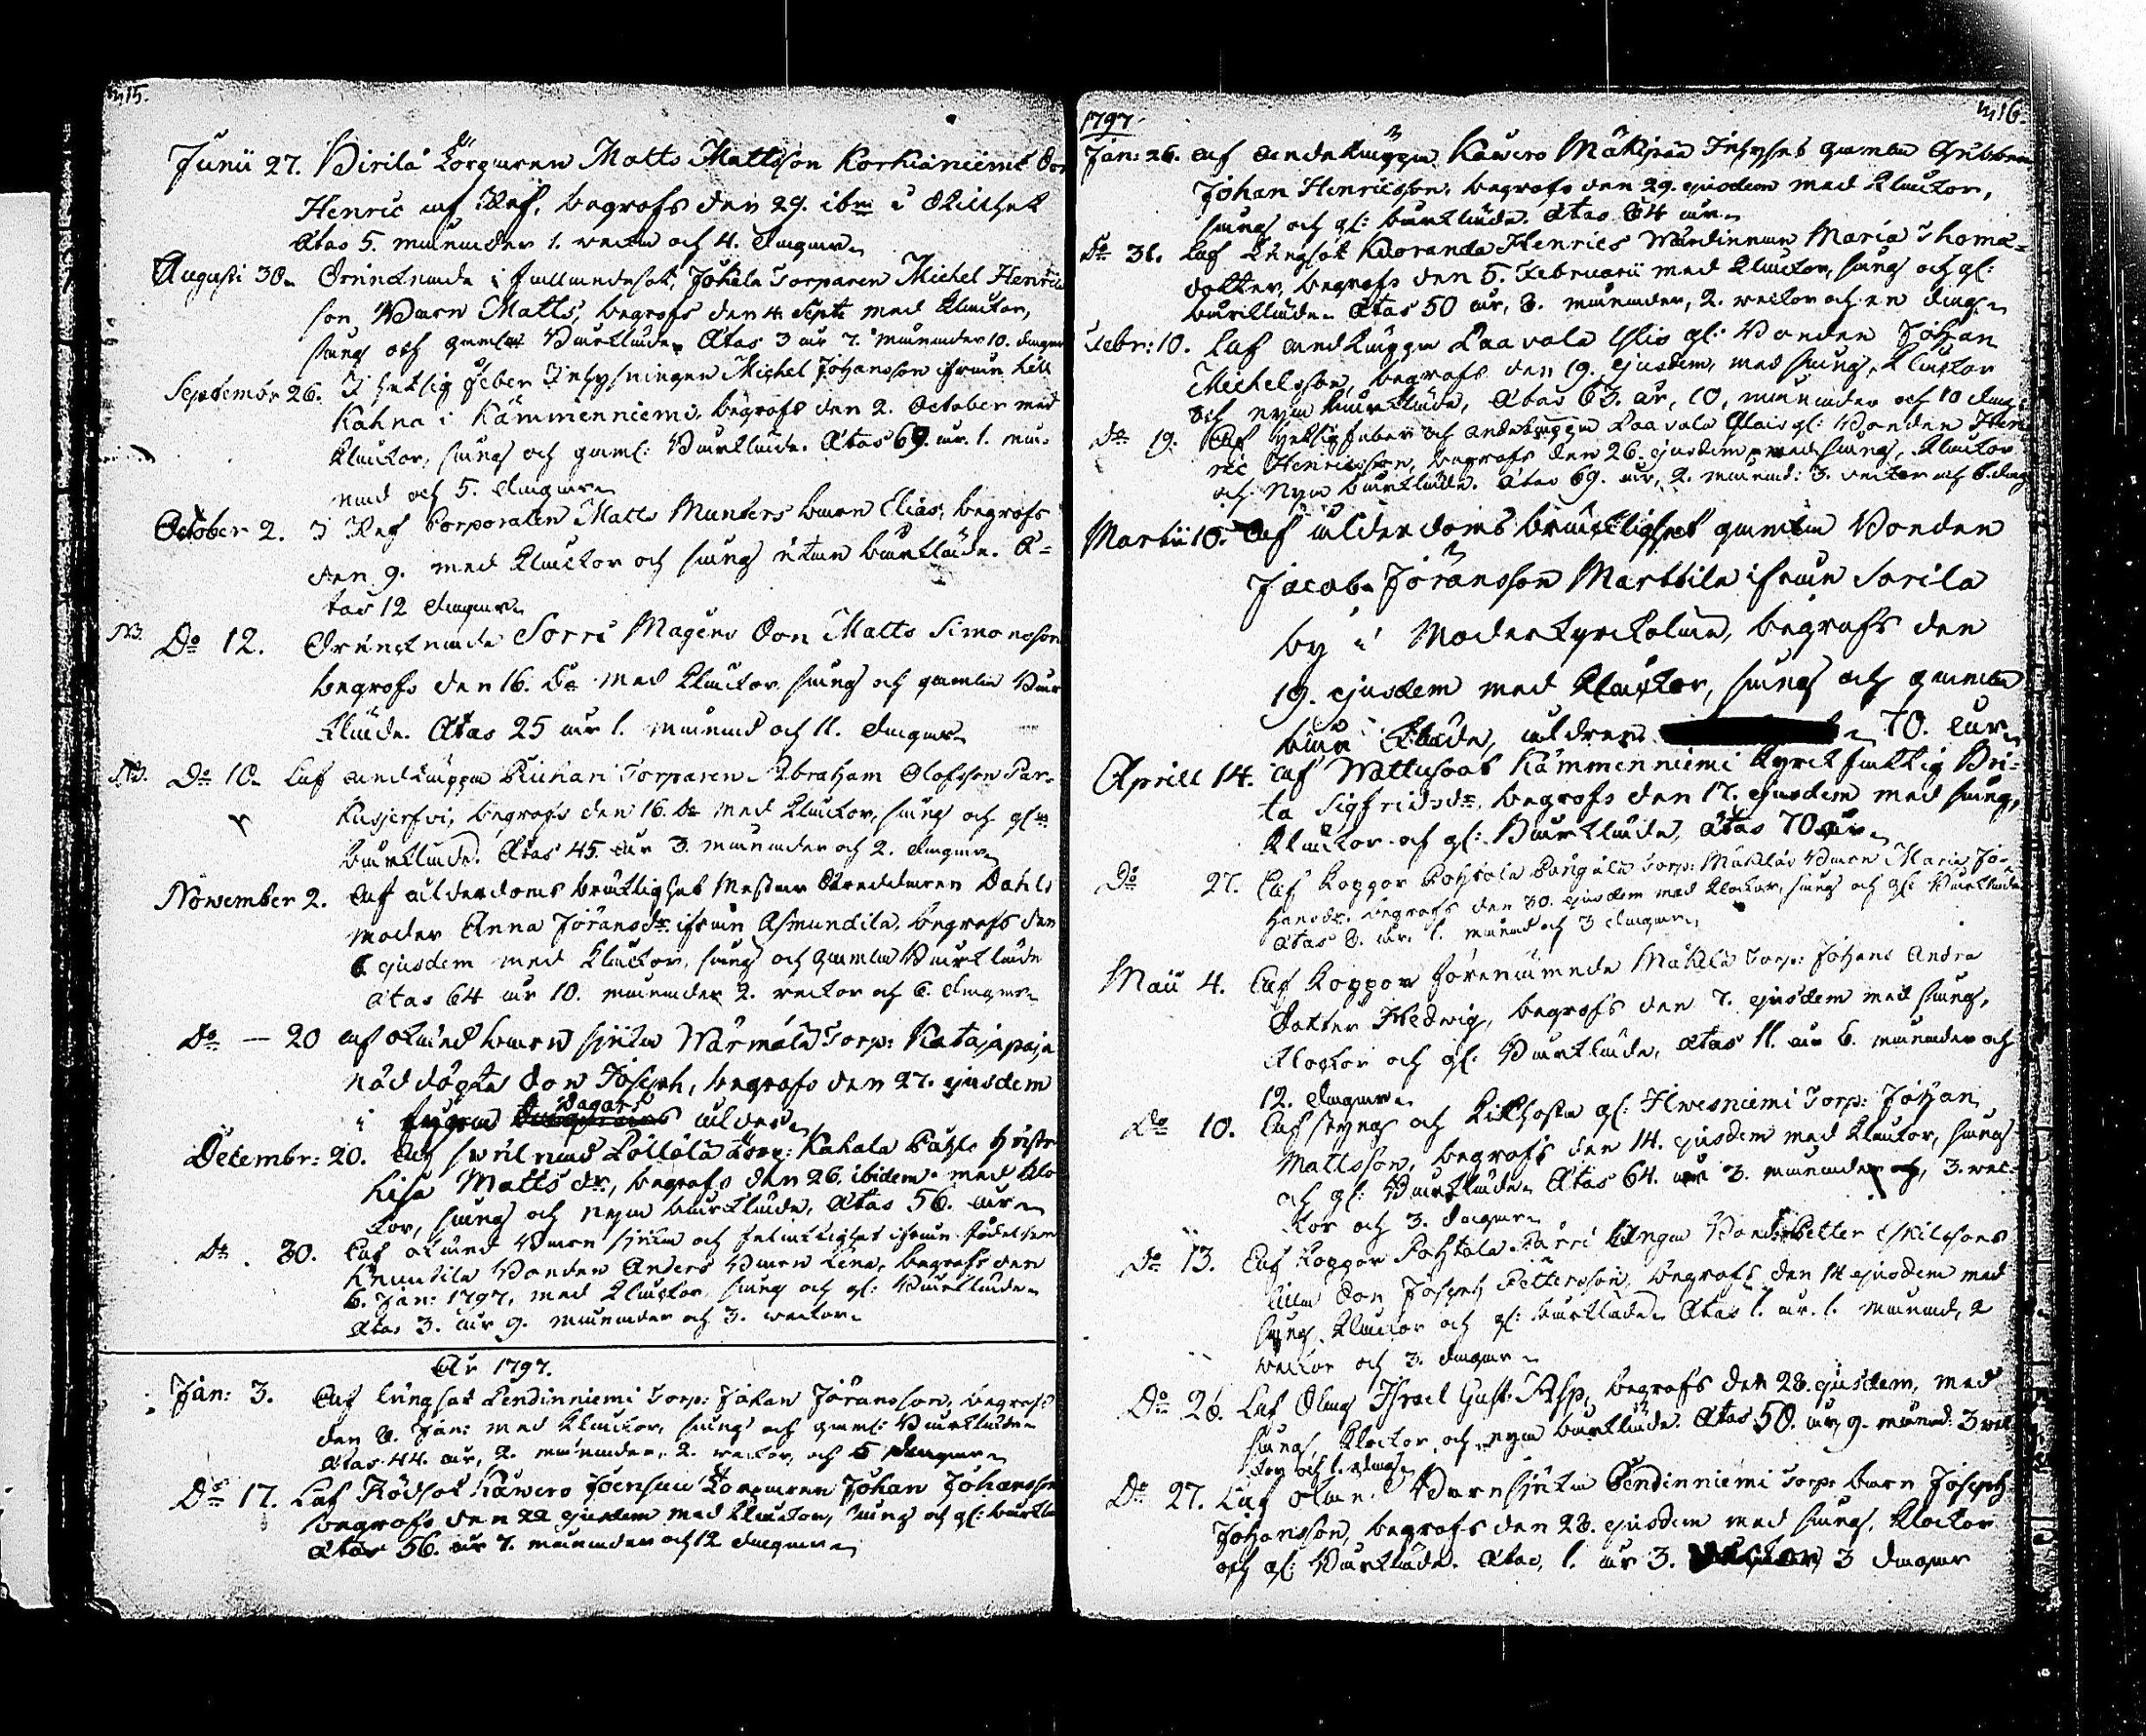 m15.
Junii 27. Virila Torparen Matts Mattsson Korkianiemis Son
Henric af Ref, begrofs den 29. ibm i stillhet
Ætas 5. månader 1. vecka och 4. dagar
Augusti 30. Drunknade i Jokela Torparen Michel Henrics
son Barn Matts, begrofs den 4 Sept: med klackor,
sång och gamla Baarkläde. Ætas 3 år 7. månader 10. dagar
September 26. I hetsig feber Inhysningen Michel Johansson ifrån
Kahna i Kämmenniemi, begrofs den 2. October med
klackor, sång och gaml: Baarkläde. Ætas 69. år. 1. må-
nad och 5. dagar
October 2. I Ref Corporalen Matts Munters barn Elias, begrofs
den 9. med klackor och sång utan baarkläde. Æ-
tas 12 dagar
NB. Do 12. Drunknade Sorri Mågens Son Matts Simonsson
begrofs den 16. Do med klackor sång och gamla Baar
kläde. Ætas 25 år 1. månad och 11. dagar
NB. Do 10. Af andtäppa Torparen Abraham Olofsson Par-
kusjerfvi, begrofs den 16. Do med klackor, sång och gl:
baarkläde. Ætas 45. år 3. månader och 2. dagar
November 2. Af ålderdoms bräklighet Mästar Skreddaren Dahls
moder Anna Jöransdr. ifrån Asmundila, begrofs den
6 ejusdem med klackor, sång och gamla Baarkläde
Ætas 64 år 10. månader 2. veckor och 6. dagar
Do — 20 af okänd barn sjuka Wärmälä Torp: Katajapaja
nöddöpta Son Joseph, begrofs den 27. ejusdem
i dagars ålder
Decembr: 20. Af Pöllölä Torp: Kahala Påhls Hustru
Lisa Matts dr, begrofs den 26. ibidem med klo
kor, sång och nya baarkläde, Ætas 56. år
Do. 30. Af okänd Barn sjuka och ifrån födelsen
Knuutila Bonden Anders Barn Lena, begrofs den
6. Jan: 1797, med klackor sång och gl: Baarkläde
Ætas 3. år 9. månader och 3. veckor.
År 1797.
Jan: 3. Af lungsot Lendinniemi Torp: Johan Jöransson, begrofs
den 8. Jan: med klackor, sång och gaml: Baarkläde
Ætas 44. år, 2. månader, 2. veckor, och 5 dagar
Do 17. Af Rödsot Kåwero Torparen Johan Johansson
begrofs den 22 ejusdem med klackor, sång och gl: baarklä
Ætas 56. år 7. månader och 12 dagar
m16.
1797.
Jan: 26. af andetäppa Kåwero Mäkipää Inhyses gamla Gubben
Johan Henricsson, begrofs den 29. ejusdem med klackor,
sång och gl: baarkläde. Ætas 64 år
Do 31. Af Lungsot Kuoranda Henrics Wärdinnan Maria Thomæ-
dotter, begrofs den 5. Februarii med klackor, sång och gl:
baarkläde. Ætas 50 år, 8. månader, 2. veckor och en dag
Febr: 10. Af andtäppa Laavala gl: Bonden Johan
Michelsson, begrofs den 19. ejusdem, med sång, klackor
och nya baarkläde, Ætas 63. år, 10, månader och 10 dag:
Do 19. Af hetsig feber och andetäppa Laavala gl: Bonden Hen
ric Henricsson, begrofs den 26. ejusdem, med sång, klackor
och nya baarkläde. Ætas 69. år, 2. månad: 3. veckor och 6. dag
Martii 10. Af ålderdoms bräcklighet gamla Bonden
Jacob Jöransson Marttila ifrån Sorila
by i Moderkyrkolan, begrofs den
19. ejusdem med klackor, sång och gamla
baar kläde, ålder 70. år
Aprill 14. af Wattusot Kämmenniemi Kyrckfattig Bri-
ta Sigfridsdr. begrofs den 17. ejusdem med sång,
klackor och gl: Baarkläde, Ætas 70 år
Do 27. Af koppor Pohtola Torp: Mäkiläs Barn Maria Jo-
hansdr. begrofs den 30. ejusdem med klockor, sång och gl: Baarkläde
Ætas 8. år, 1. månad och 3 dagar
Maii 4. Af koppor förenämnde Mäkilä Torp: Johans Andra
Dotter Hedwig, begrofs den 7. ejusdem med sång,
klockor och gl: Baarkläde, Ætas 11. år 6. månader och
12. dagar
Do 10. Af styng och gl: Hirvesniemi Torp: Johan
Mattsson, begrofs den 14. ejusdem med klackor, sång
och gl: Baarkläde. Ætas 64. år 3. månader, 3. vec-
kor och 3. dagar
Do 13. Af koppor Pohtola Bond: Petter
lilla Son Joseph Pettersson, begrofs den 14 ejusdem med
sång, klackor och gl: baarkläde. Ætas 1. år. 1. månad, 2
veckor och 3. dagar
Do 26. Af Israel Gust: Asp, begrofs den 28. ejusdem, med
sång, klockor, och nya baarkläde. Ætas 50. år, 9. månad. 3 vec
kor och 1. dag
Do 27. Af Barnsjuka Lendinniemi Torp: barn Joseph
Johansson, begrofs den 28. ejusdem med sång, klockor
och gl: Baarkläde. Ætas, 1. år 3. veckor, 3 dagar